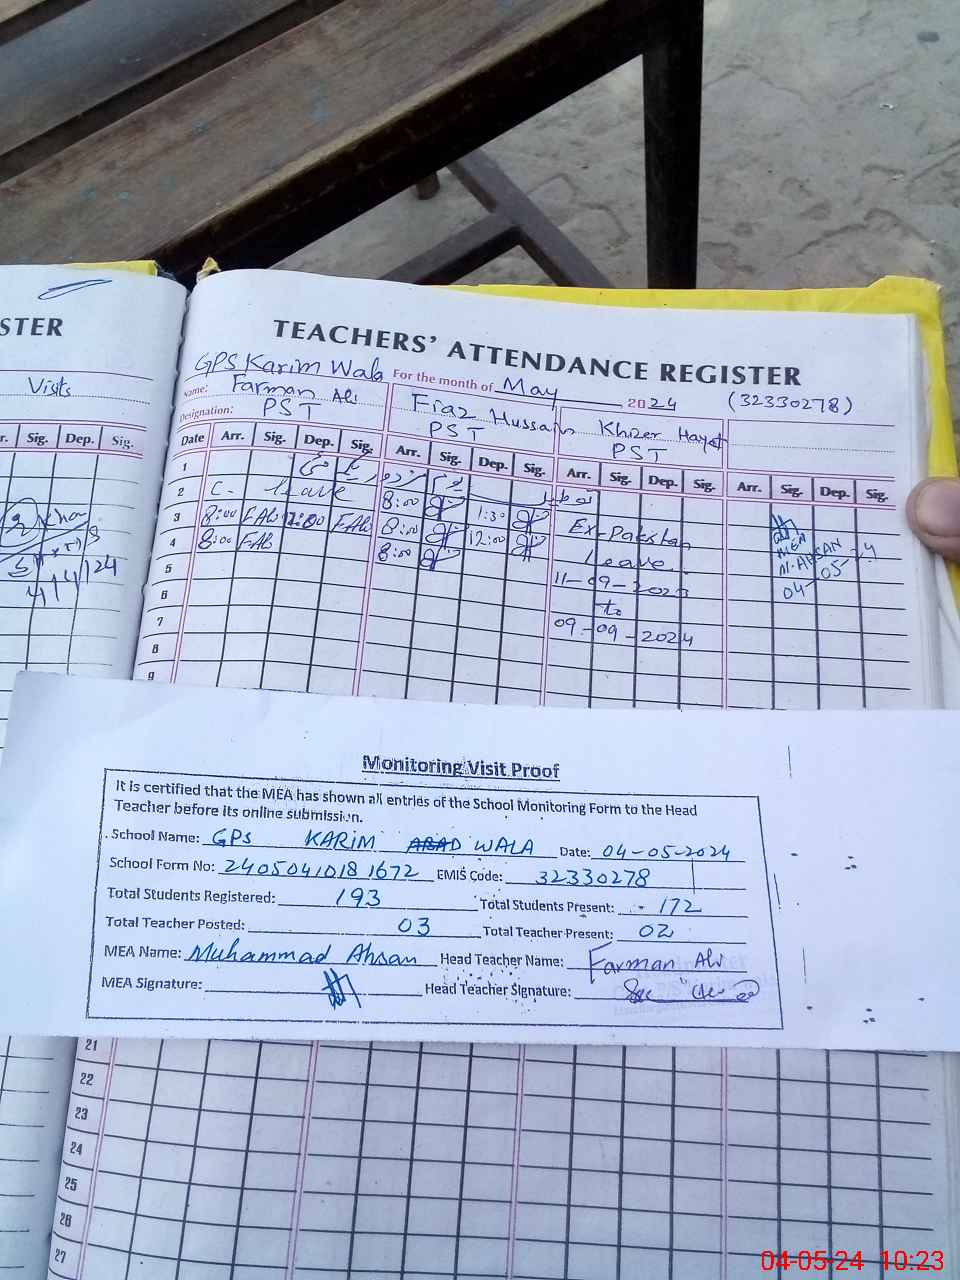 STER
TEACHERS' ATTENDANCE REGISTER
GPS Karim Wala For the month of May 2024 (32330278)
Visits
Name: Farman Ali Fiaz Hussain Khizer Hayat
Designation: PST PST PST
r. Sig. Dep. Sig.
Date Arr. Sig. Dep. Sig. Arr. Sig. Dep. Sig. Arr. Sig. Dep. Sig. Arr. Sig. Dep. Sig.
1
2 C. leave 8:00 1:30
3 8:00 FAli 12:00 FAli 8:00 12:00 Ex-Pakistan
4 8:00 FAli 8:00 Leave
MEA
M. AHSAN
04-05-24
5 11-09-2023
6 to
7 09-09-2024
8
9
Monitoring Visit Proof
It is certified that the MEA has shown all entries of the School Monitoring Form to the Head
Teacher before its online submission.
School Name: GPS KARIM WALA Date: 04-05-2024
School Form No: 24050410181672 EMIS Code: 32330278
Total Students Registered: 193 Total Students Present: 172
Total Teacher Posted: 03 Total Teacher Present: 02
MEA Name: Muhammad Ahsan Head Teacher Name: Farman Ali
MEA Signature: Head Teacher Signature:
21
22
23
24
25
26
27
04-05-24 10:23